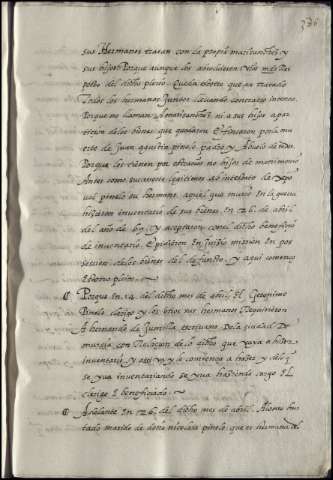 376
sus Hermanos tratan con la propia
sus hijos Porque aunque
del dicho pleito.
todos los hermanos Juntos
Porque no llaman ni a sus hijos a par
ticion de los bienes que quedaron E fincaron por la mu
erte de Juan agustin pinelo padre y Abuelo de todos
Porque los tienen por estraños no hijos de matrimonio
Antes como sucesores legitimos ab intestato de
pinelo su hermano, aquel que murio En la guerra
hizieron inventario de sus bienes, En 26. de abril
del año de y aceptaron con el dicho beneficio
de inventario. E pidieron En juizio mission En pos
session de los bienes del defunto, y aqui començo
Este otro pleito.
Porque En 14 del dicho mes de abril, El Geronimo
Pinelo clerigo y los otros sus hermanos Requirieron
A hernando de Jumilla, escrivano de la ciudad De
murcia, con Relacion de lo dicho que vaya a hazer
inventario y assi va y lo comiença a hazer y
se va inventariando se va haziendo cargo El
clerigo E beneficiado.
Adelante En 26. del dicho mes de abril, Alonso hur
tado marido de doña nicolasa pinelo, que es hermana del